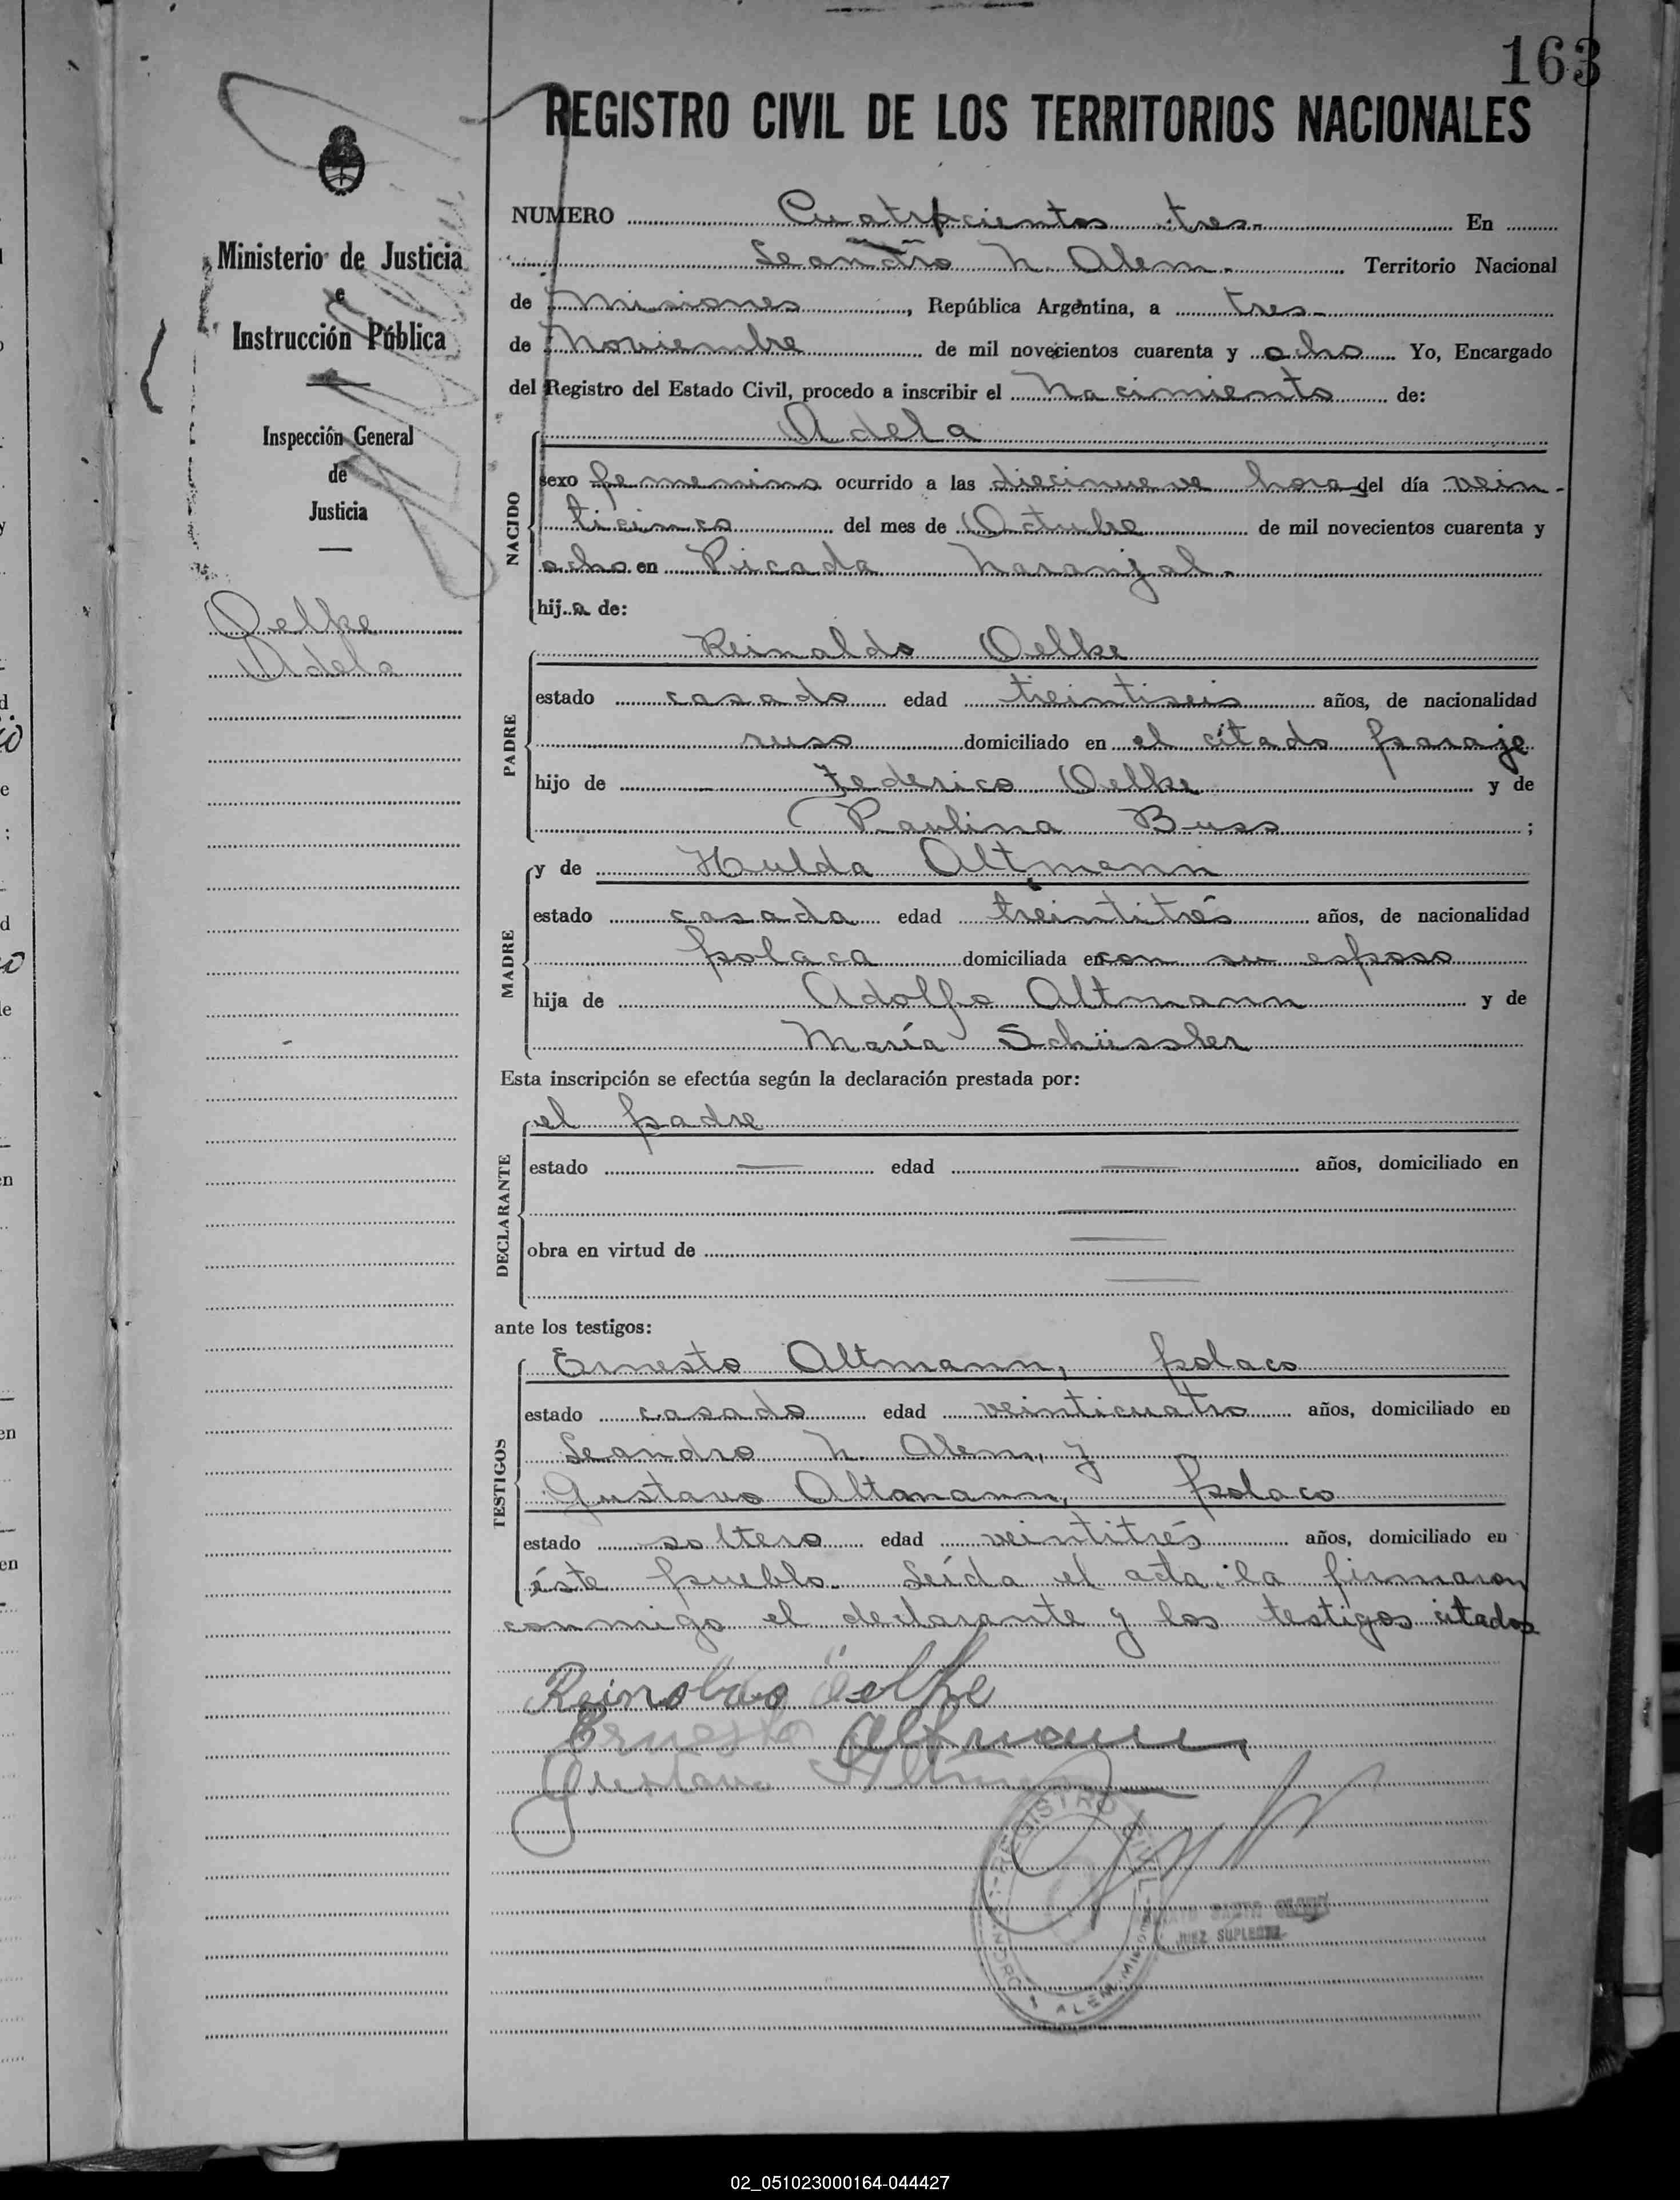 163
REGISTRO CIVIL DE LOS TERRITORIOS NACIONALES
Ministerio de Justicia
e
Instrucción Pública
Inspección General
de
Justicia
Oelke
Adela
NUMERO Cuatrocientos tres.- En
Leandro N. Alem.- Territorio Nacional
de Misiones, República Argentina, a tres.-
de Noviembre de mil novecientos cuarenta y ocho Yo, Encargado
del Registro del Estado Civil, procedo a inscribir el Nacimiento de:
NACIDO
Adela
sexo femenino ocurrido a las diecinueve hora del día vein-
ticinco del mes de Octubre de mil novecientos cuarenta y
ocho en Picada Naranjal.-
hija de:
PADRE
Reinaldo Oelke
estado casado edad treintiseis años, de nacionalidad
ruso domiciliado en el citado paraje
hijo de Federico Oelke y de
Paulina Buss ;
MADRE
y de Hulda Altmann
estado casada edad treintitrés años, de nacionalidad
polaca domiciliada en con su esposo
hija de Adolfo Altmann y de
María Schüssler
Esta inscripción se efectúa según la declaración prestada por:
DECLARANTE
el padre
estado — edad — años, domiciliado en
—
obra en virtud de —
—
ante los testigos:
TESTIGOS
Ernesto Altmann, polaco
estado casado edad veinticuatro años, domiciliado en
Leandro N. Alem, y
Gustavo Altmann, polaco
estado soltero edad veintitrés años, domiciliado en
éste pueblo. Leída el acta la firmaron
conmigo el declarante y los testigos citados
Reinoldo Oelke
Ernesto Altmann
Gustavo Altm
REGISTRO CIVIL
ALEM
JUEZ SUPLENTE
02_051023000164-044427